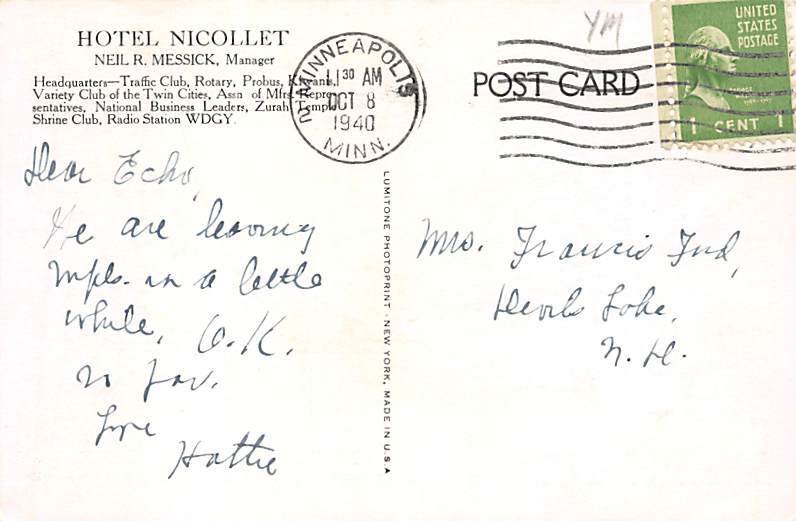 HOTEL NICOLLET
NEIL R. MESSICK, Manager
Headquarters—Traffic Club, Rotary, Probus, Kiwanis,
Variety Club of the Twin Cities, Assn of Mfrs. Repre-
sentatives, National Business Leaders, Zurah Temple
Shrine Club, Radio Station WDGY.
MINNEAPOLIS
2
11 30 AM
OCT 8
1940
MINN.
YM
POST CARD
UNITED
STATES
POSTAGE
1 CENT 1
Dear Echo,
We are leaving
Mpls. in a little
while, O.K.
so far.
Love
Hattie
LUMITONE PHOTOPRINT - NEW YORK, MADE IN U.S.A
Mrs. Francis
Devils Lake,
N. D.